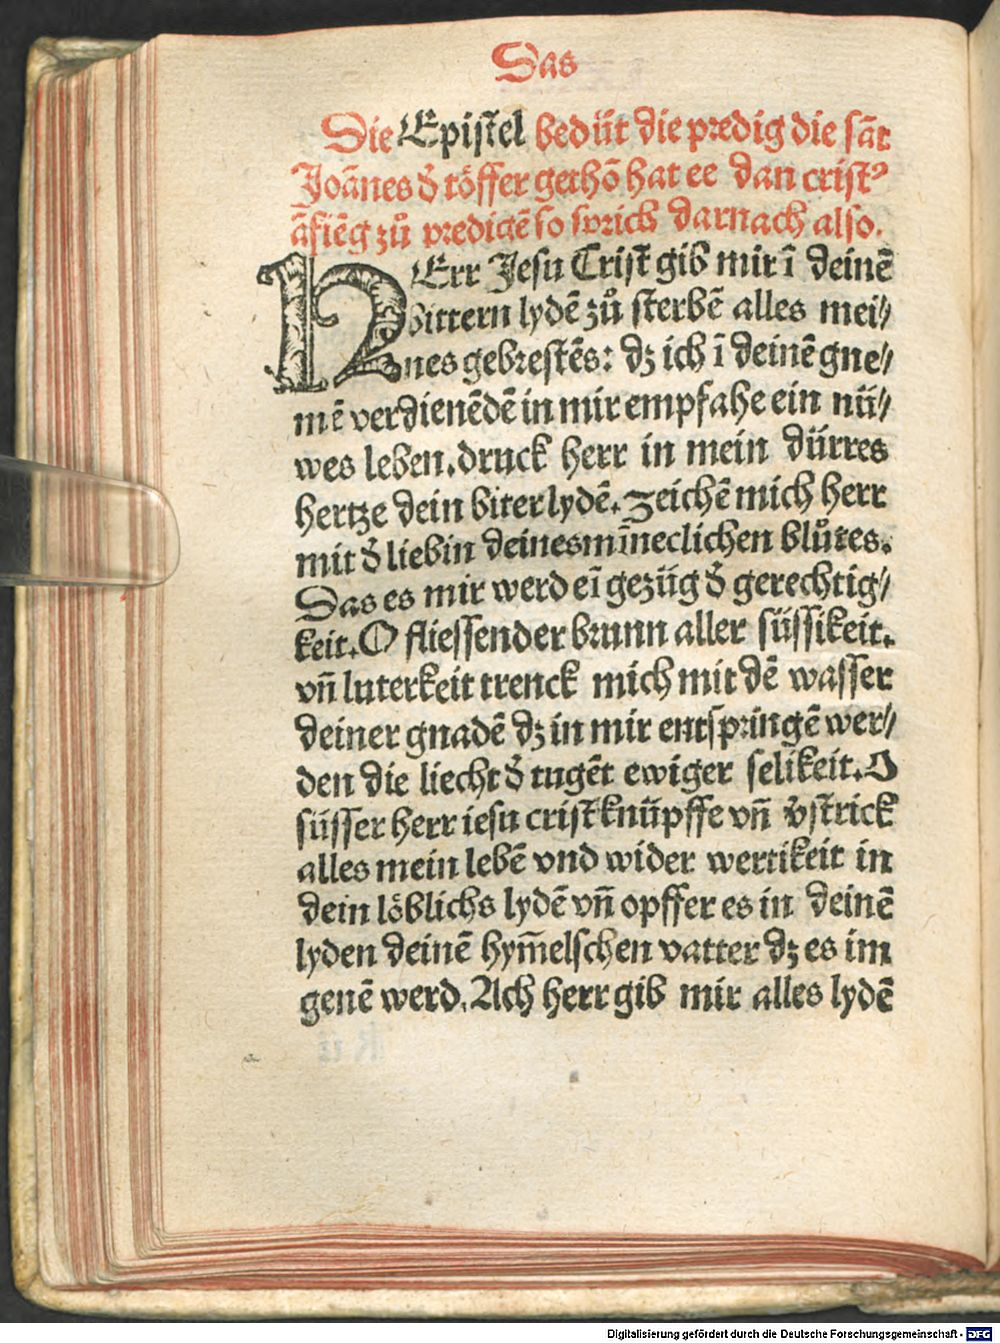 Das
Die Epistel bedüt die predig die sāt
Joānes d̄ töffer gethō hat ee dan crist⁹
āfiēg zů predigē so sprich darnach also.
HErr Jesu Crist gib mir ī deinē
bittern lydē zů sterbē alles mei⸗
nes gebrestēs: dz ich ī deinē gne⸗
mē verdienēdē in mir empfahe ein nü⸗
wes leben. druck herr in mein dürres
hertze dein biter lydē. zeichē mich herr
mit d̄ liebin deines mīneclichen blůtes.
Das es mir werd eī gezüg d̄ gerechtig⸗
keit. O fliessender brunn aller süssikeit.
vn̄ luterkeit trenck mich mit dē wasser
deiner gnadē dz in mir entspringē wer⸗
den die liecht d̄ tugēt ewiger selikeit. O
süsser herr iesu crist knüpffe vn̄ v̄strick
alles mein lebē vnd wider wertikeit in
dein löblichs lydē vn̄ opffer es in deinē
lyden deinē hym̄elschen vatter dz es im
genē werd. Ach herr gib mir alles lydē
Digitalisierung gefördert durch die Deutsche Forschungsgemeinschaft - DFG